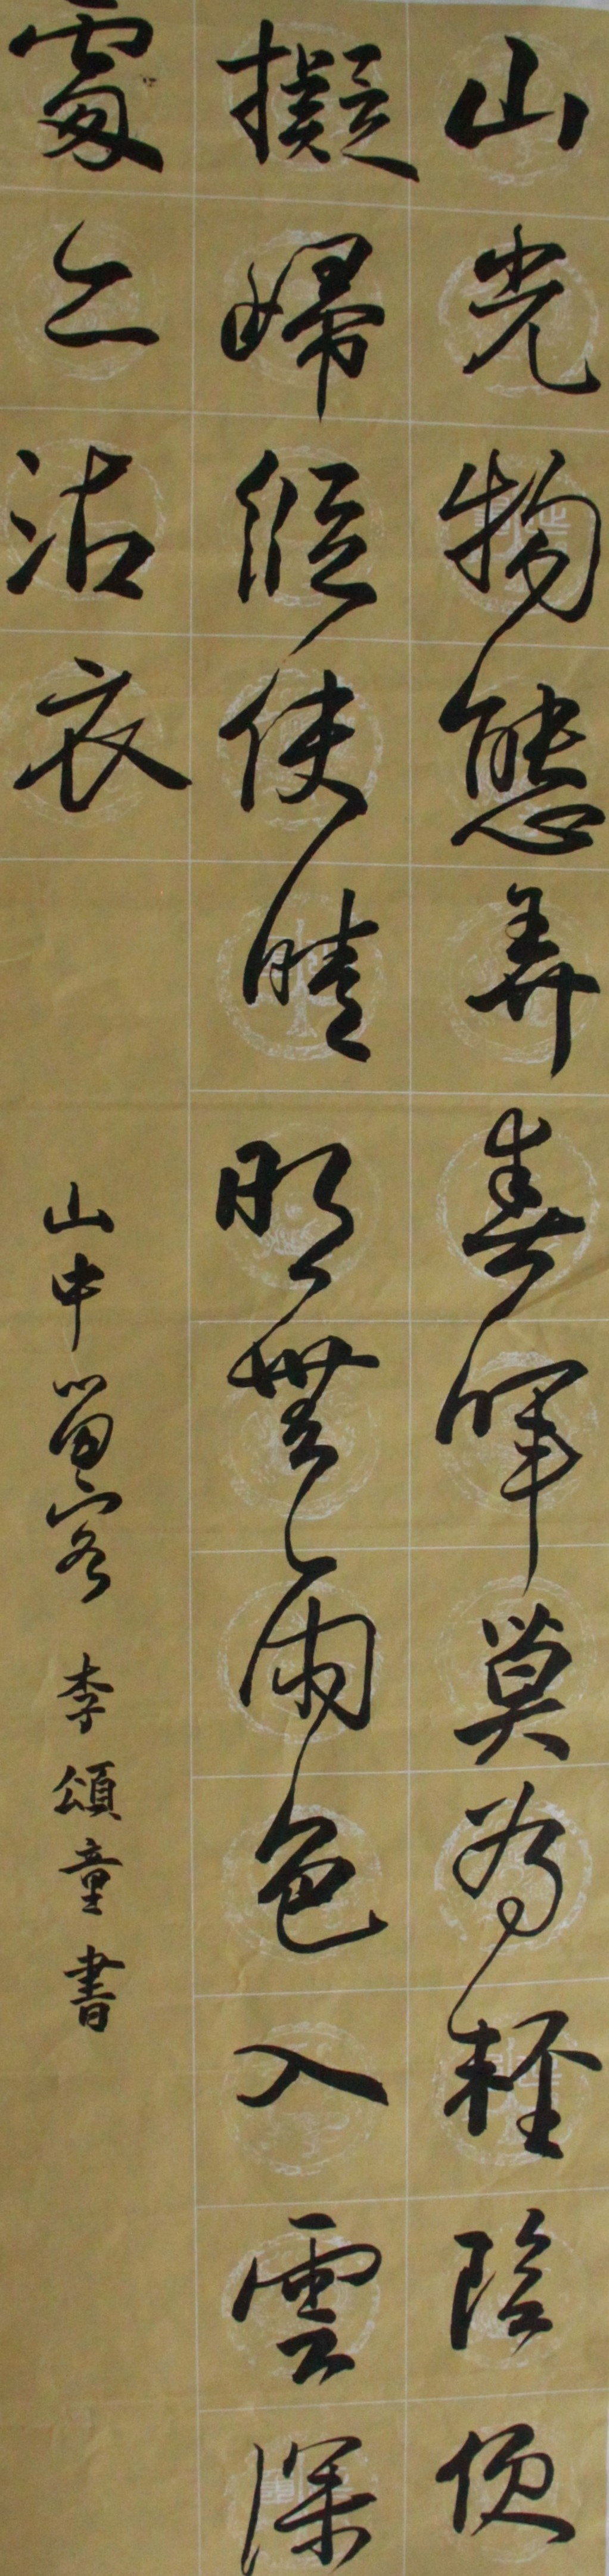 山光物態弄春暉莫為輕陰便
擬歸縱使晴明無雨色入雲深
處亦沾衣
山中留客 李頌童書